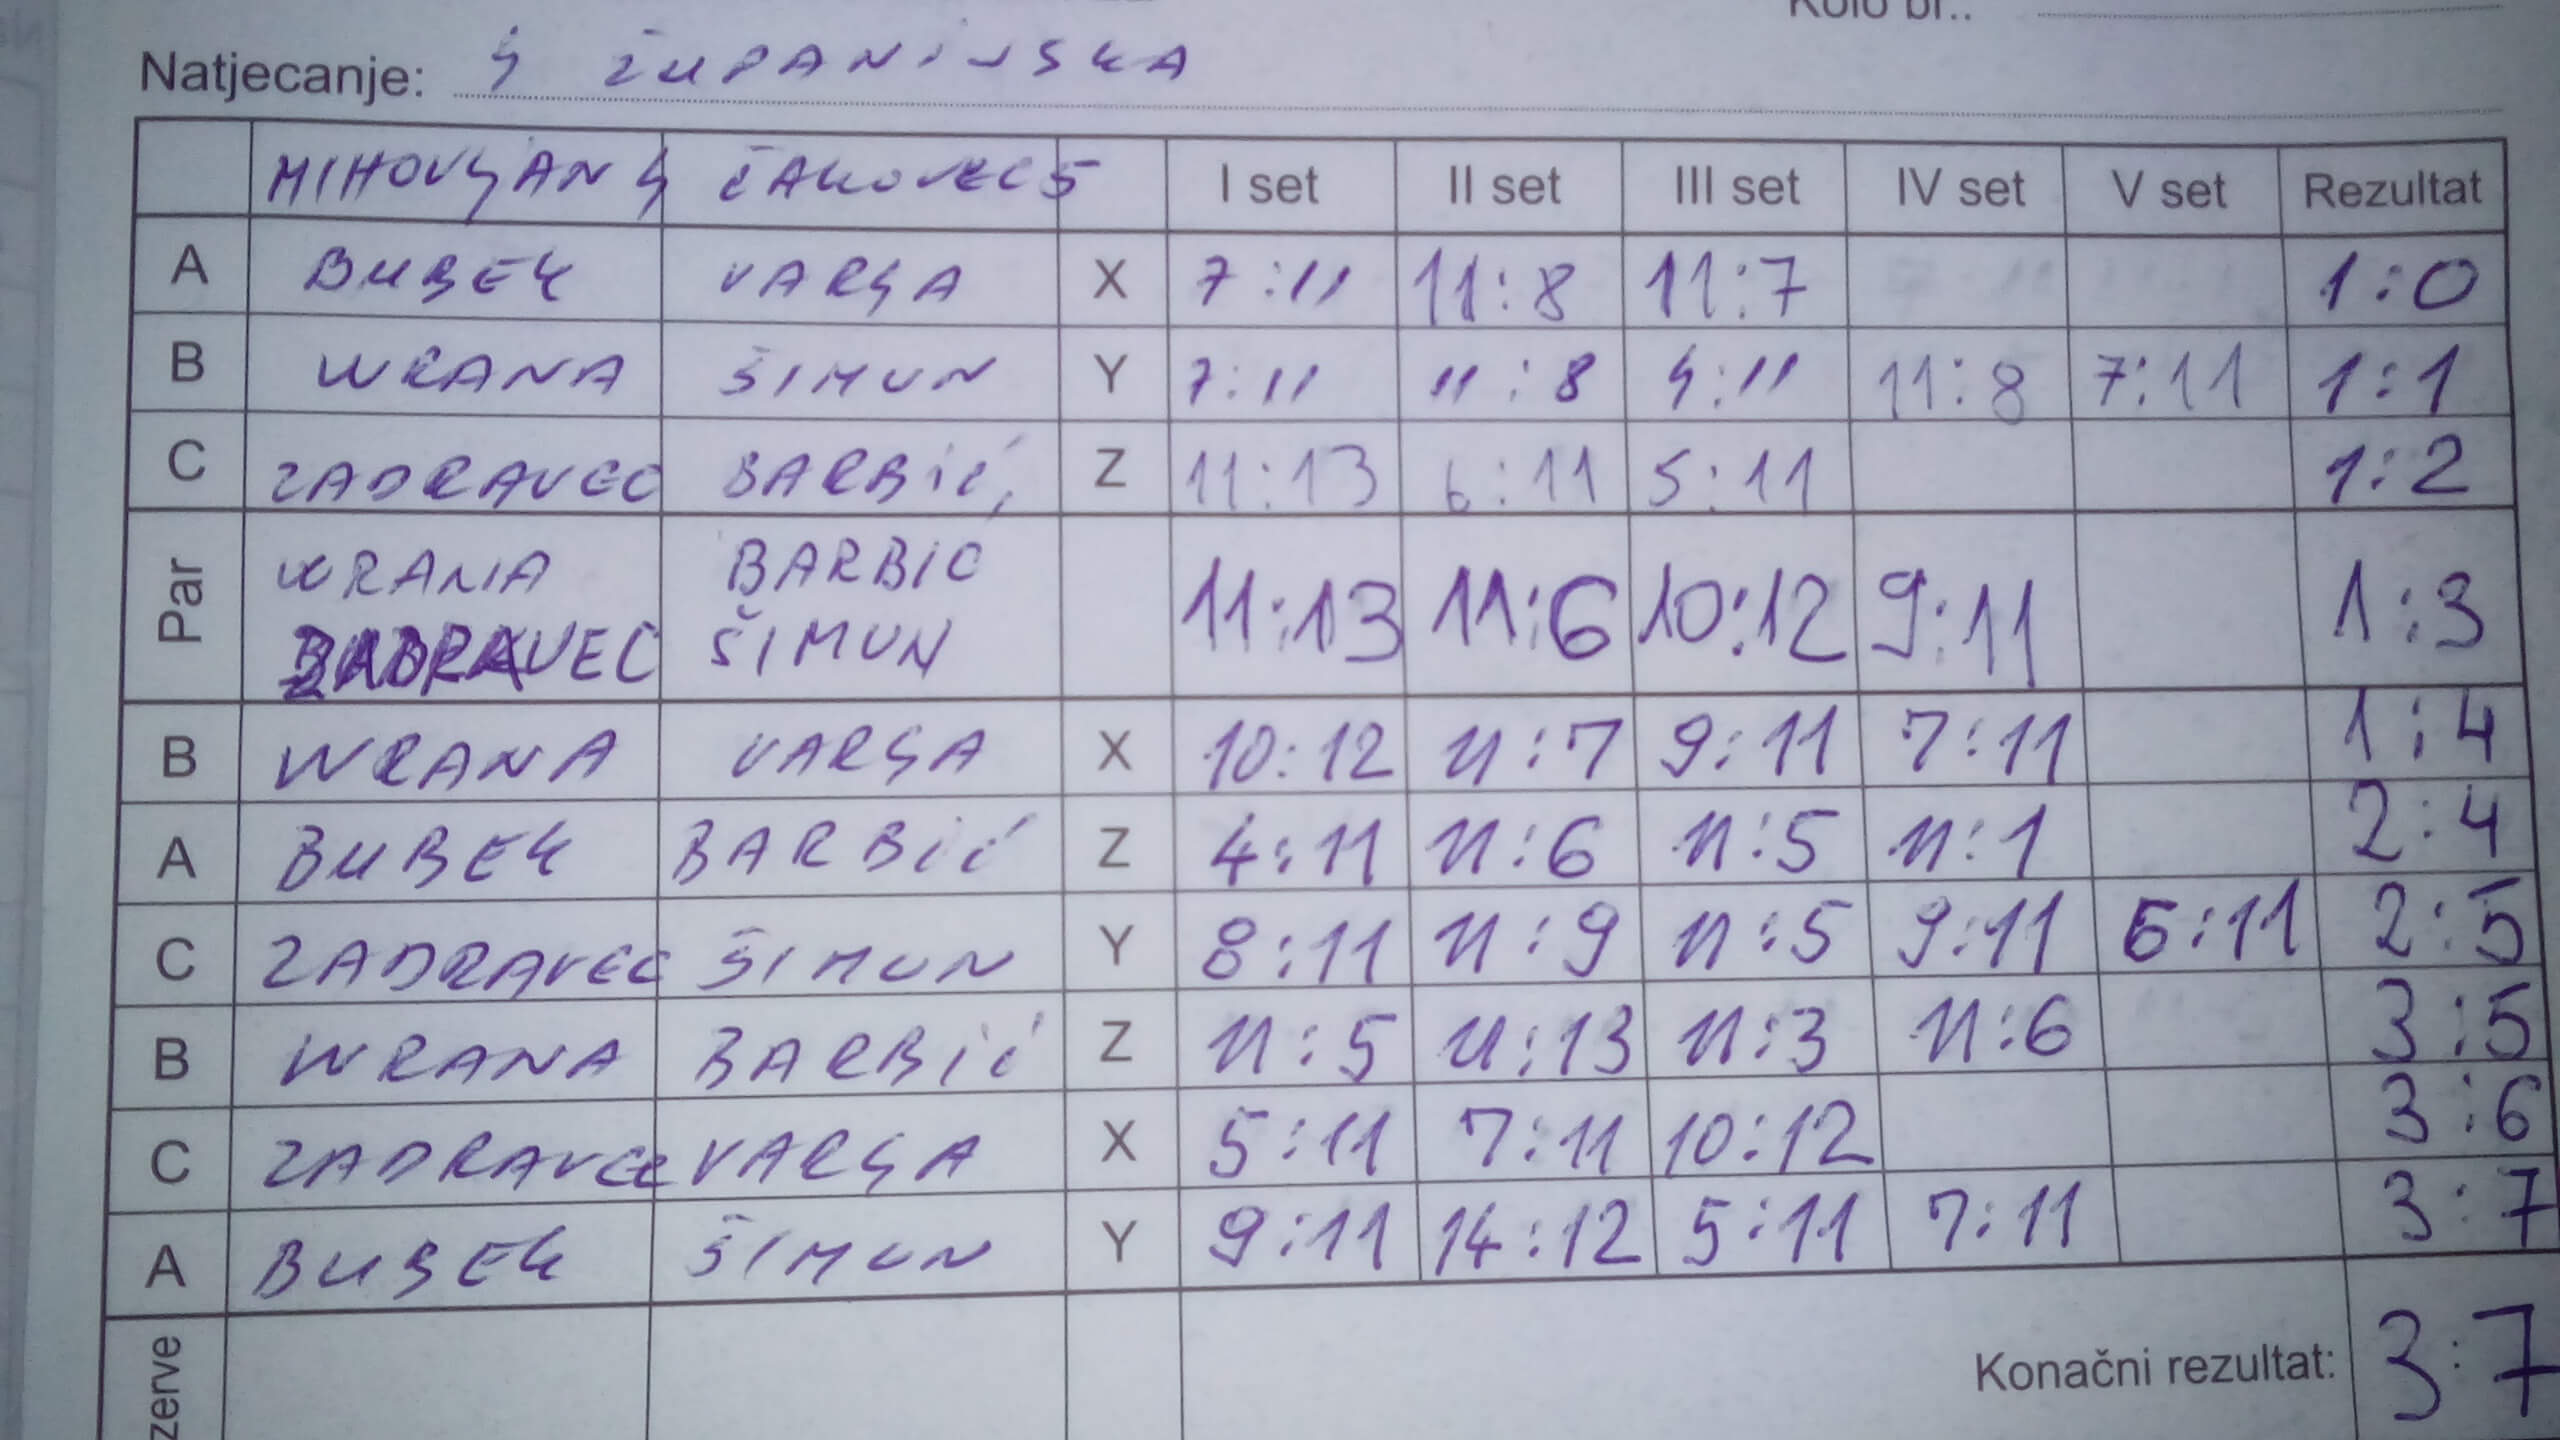 Kolo br..
Natjecanje: 4 ŽUPANIJSKA
MIHOVLJAN 4 ČAKOVEC 5 I set II set III set IV set V set Rezultat
A BUBEK VARGA X 7:11 11:8 11:7 1:0
B WRANA ŠIMUN Y 7:11 11:8 4:11 11:8 7:11 1:1
C ZADRAVEC BARBIĆ Z 11:13 6:11 5:11 1:2
Par WRANA BARBIĆ 11:13 11:6 10:12 9:11 1:3
ZADRAVEC ŠIMUN
B WRANA VARGA X 10:12 11:7 9:11 7:11 1:4
A BUBEK BARBIĆ Z 4:11 11:6 11:5 11:1 2:4
C ZADRAVEC ŠIMUN Y 8:11 11:9 11:5 9:11 6:11 2:5
B WRANA BARBIĆ Z 11:5 11:13 11:3 11:6 3:5
C ZADRAVEC VARGA X 5:11 7:11 10:12 3:6
A BUBEK ŠIMUN Y 9:11 14:12 5:11 7:11 3:7
zerve Konačni rezultat: 3:7